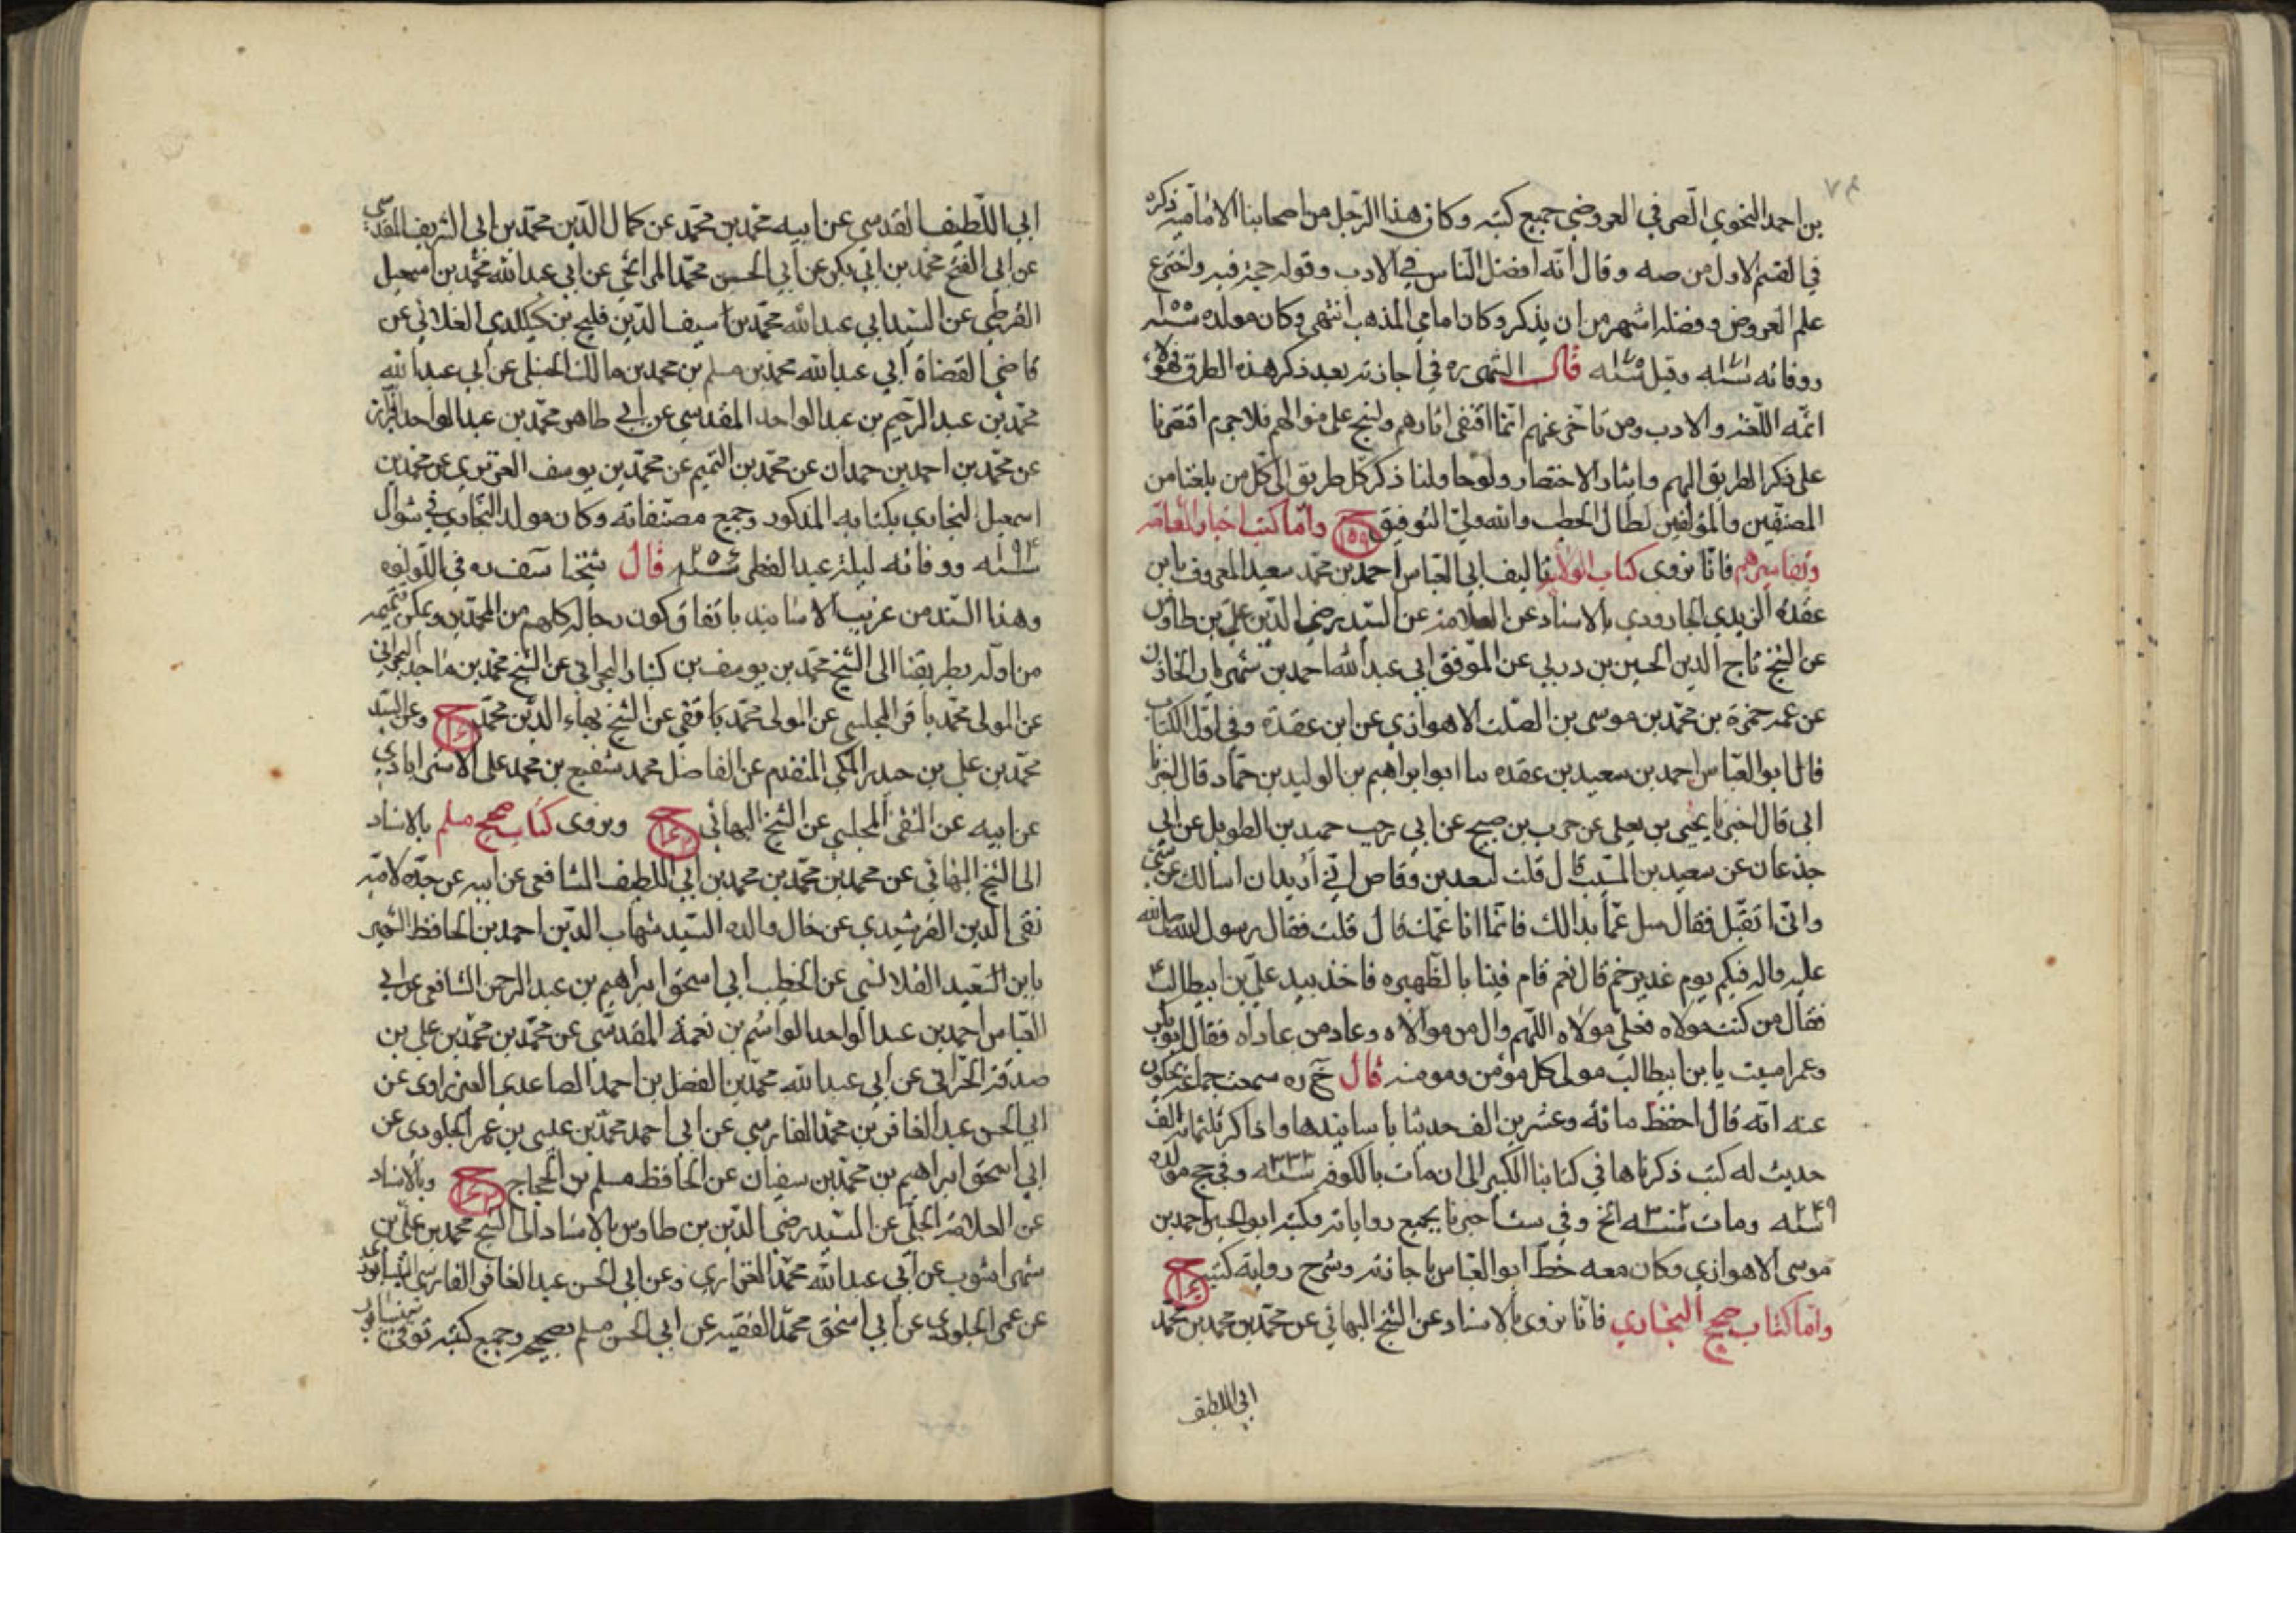 بن احمد النحوي الصرفي العروضي جميع كتبه وكان هذا الرجل من اصحابنا الاماميه ذكره
في القسم الاول من صه وقال انه افضل الناس في الادب وقوله حجة فيه واخترع
علم العروض وفضله اشهر من ان يذكر وكان امامي المذهب انتهى وكان مولده
ووفاته وقيل قال الشهيد ره في اجازته بعد ذكر هذه الطرق فهؤلاء
ائمه اللغه والادب ومن تاخر عنهم انما اقتفى اثارهم ونسج على منوالهم فلا جرم اقتصرنا
على ذكر الطريق اليهم وايثار الاختصار ولو حاولنا ذكر كل طريق الى كل من بلغنا من
المصنفين والمؤلفين لطال الخطب والله ولي التوفيق ح ١٥٩ واما كتب اخبار العامه
وتفاسيرهم فانا نروي كتاب الولاية تاليف ابي العباس احمد بن محمد سعيد المعروف بابن
عقده الزيدي الجارودي بالاسناد عن العلامه عن السيد رضي الدين علي بن طاوس
عن الشيخ تاج الدين الحسين بن دربي عن الموفق ابي عبد الله احمد بن شهريار الخازن
عن عمه حمزة بن محمد بن موسى بن الصلت الاهوازي عن ابن عقدة وفي اول الكتاب
قال ابو العباس احمد بن سعيد بن عقده ثنا ابو ابراهيم بن الوليد بن حماد قال اخبرنا
ابي قال اخبرنا يحيى بن يعلى عن حرب بن صبيح عن ابي رجب حميد بن الطويل عن ابي
جذعان عن سعيد بن المسيب قال قلت لسعد بن وقاص اني أريد ان اسالك عن شيء
واني اتقيك فقال سل عما بدا لك فانما انا عمك قال قلت فقال رسول الله صلى الله
عليه واله فيكم يوم غدير خم قال نعم قام فينا بالظهيره فاخذ بيد علي بن ابيطالب
فقال من كنت مولاه فعلي مولاه اللهم وال من والاه وعاد من عاداه فقال ابو بكر
وعمر امسيت يا بن ابيطالب مولى كل مؤمن ومومنه قال ره سمعت جماعة يحكون
عنه انه قال احفظ مائة وعشرين الف حديثا بأسانيدها واذاكر بثلثمائه الف
حديث له كتب ذكرناها في كتابنا الكبير الى ان مات بالكوفه سنه ٣٣٣ وفي مولده
سنه ٢٤٩ ومات الخ وفي اخبرنا بجميع رواياته وكتبه ابو الحسن احمد بن
موسى الاهوازي وكان معه خط ابو العباس باجازته وشرح رواية كتبه ح ١٦٠
واما كتاب صحيح البخاري فانا نروي بالاسناد عن الشيخ البهائي عن محمد بن محمد بن محمد
ابي اللطيف
ابي اللطيف المقدسي عن ابيه محمد بن محمد عن كمال الدين محمد بن ابي الشريف المقدسي
عن ابي الفتح محمد بن ابي بكر عن ابي الحسن محمد المراغي عن ابي عبد الله محمد بن اسمعيل
القرطبي عن السيد ابي عبد الله محمد بن سيف الدين فليح بن كيكلدي العلائي عن
قاضي القضاة ابي عبد الله محمد بن مسلم بن محمد بن مالك الحنبلي عن ابي عبد الله
محمد بن عبد الرحيم بن عبد الواحد المقدسي عن ابي طاهر محمد بن عبد الواحد البزاز
عن محمد بن احمد بن حمدان عن محمد بن التميم عن محمد بن يوسف العزيزي عن محمد بن
اسمعيل البخاري بكتابه المذكور وجميع مصنفاته وكان مولد البخاري في شوال
سنه ١٩٤ ووفاته ليلة عيد الفطر سنه ٢٥٦ قال شيخنا يوسف ره في اللؤلؤه
وهذا السند من غريب الاسانيد باتفاق كون رجاله كلهم من المحمدين ويمكن تتميمه
من اوله بطريقنا الى الشيخ محمد بن يوسف بن كنبار البحراني عن الشيخ محمد بن ماجد البحراني
عن المولى محمد باقر المجلسي عن المولى محمد تقي عن الشيخ بهاء الدين محمد ح وعن السيد
محمد بن علي بن حيدر المكي المتقدم عن الفاضل محمد شفيع بن محمد علي الاسترابادي
عن ابيه عن التقي المجلسي عن الشيخ البهائي ح ونروي كتاب صحيح مسلم بالاسناد
الى الشيخ البهائي عن محمد بن محمد بن محمد بن ابي اللطيف الشافعي عن ابيه عن جده لامه
تقي الدين القرشيدي عن خال والده السيد شهاب الدين احمد بن الحافظ الشهير
بابن السعيد القلانسي عن الخطيب ابي اسحق ابراهيم بن عبد الرحمن الشافعي عن ابي
العباس احمد بن عبد الواحد الواسم بن نعمة المقدسي عن محمد بن محمد بن علي بن
صدقة الحراني عن ابي عبد الله محمد بن الفضل بن احمد الصاعدي الفزاوي عن
ابي الحسن عبد الغافر بن محمد الفارسي عن ابي احمد محمد بن عيسى بن عمر الجلودي عن
ابي اسحق ابراهيم بن محمد بن سفيان عن الحافظ مسلم بن الحجاج ح وبالاسناد
عن العلامه الحلي عن السيد رضي الدين بن طاوس بالاسناد الى الشيخ محمد بن علي بن
شهراشوب عن ابي عبد الله محمد الفزاري وعن ابي الحسن عبد الغافر الفارسي النيسابوري
عن عمر الجلودي عن ابي اسحق محمد الفقيه عن ابي الحسن مسلم بصحيحه وجميع كتبه توفي بنيسابور